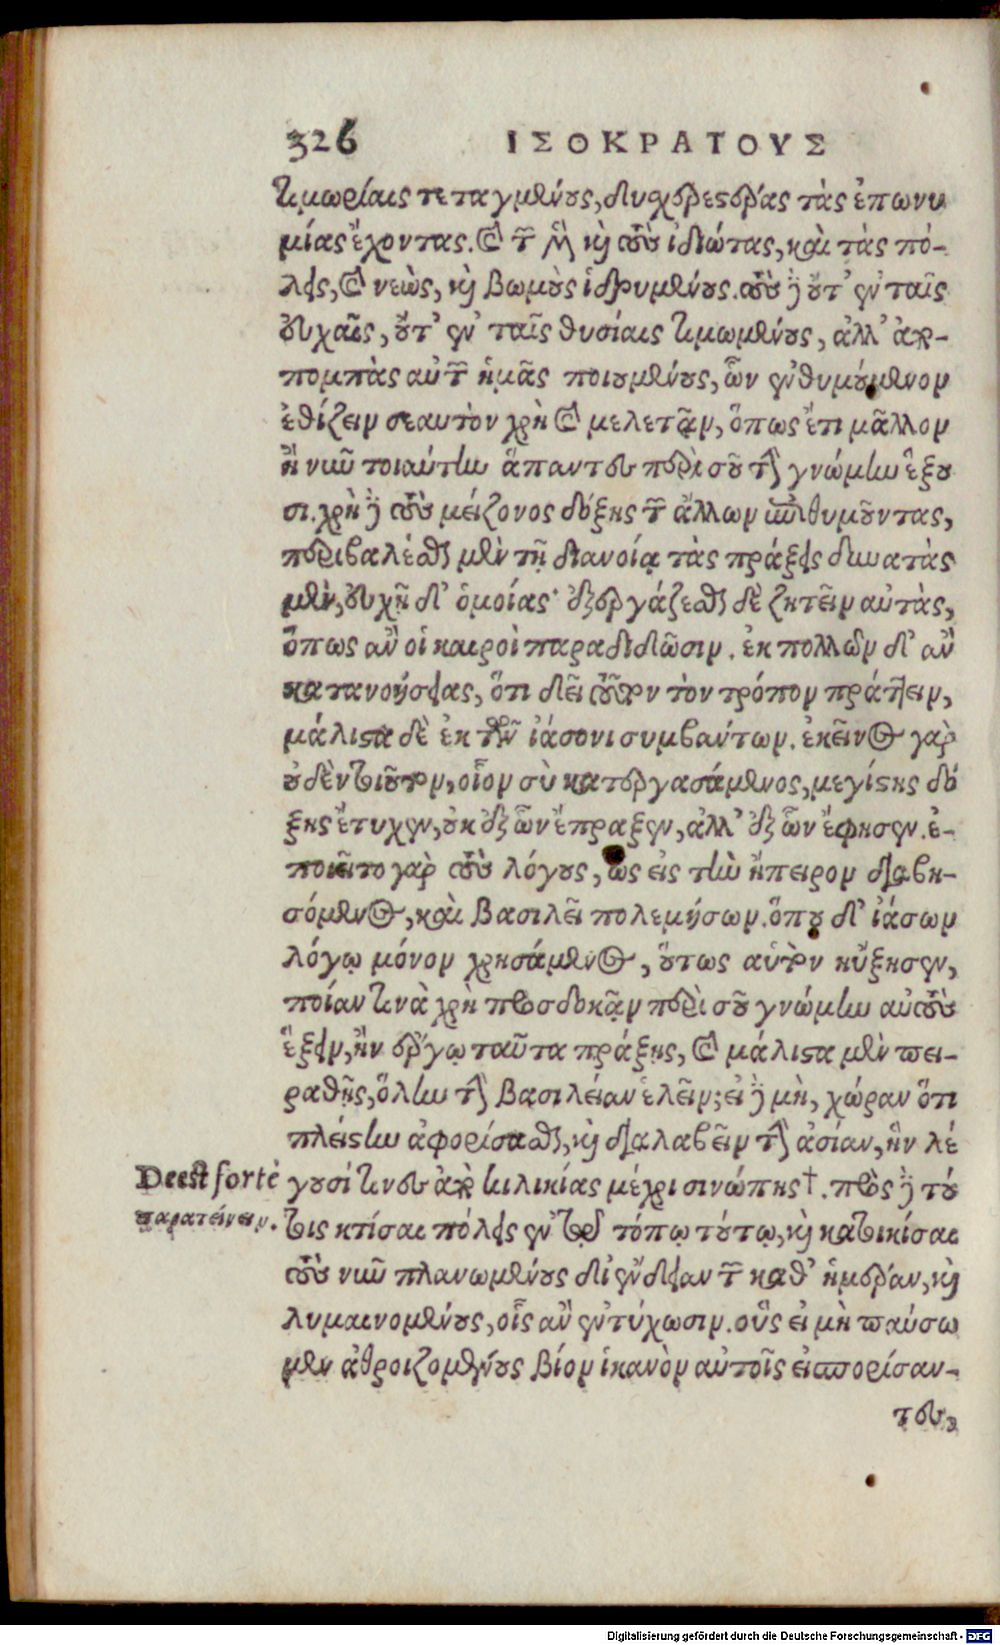 326 ΙΣΟΚΡΑΤΟΥΣ
τιμωρίαις τεταγμένους, δυσχερεστέρας τὰς ἐπωνυ
μίας ἔχοντας. καὶ τῶν μὲν καὶ τοὺς ἰδιώτας, καὶ τὰς πό-
λεις, καὶ νεὼς, καὶ βωμοὺς ἱδρυμένους. τοὺς δὲ οὔτ' ἐν ταῖς
εὐχαῖς, οὔτ' ἐν ταῖς θυσίαις τιμωμένους, ἀλλ' ἀπο-
πομπὰς αὐτῶν ἡμᾶς ποιουμένους, ὧν ἐνθυμούμενον
ἐθίζειν σεαυτὸν χρὴ καὶ μελετᾷν, ὅπως ἔτι μᾶλλον
ἢ νῦν τοιαύτην ἅπαντες περὶ σοῦ τὴν γνώμην ἕξου
σι. χρὴ δὲ τοὺς μείζονος δόξης τῶν ἄλλων ἐπιθυμοῦντας,
περιβαλέσθαι μὲν τῇ διανοίᾳ τὰς πράξεις δυνατὰς
μὲν, εὐχῇ δ' ὁμοίας· ἐξεργάζεσθαι δὲ ζητεῖν αὐτὰς,
ὅπως ἂν οἱ καιροὶ παραδιδῶσιν. ἐκ πολλῶν δ' ἂν
κατανοήσειας, ὅτι δεῖ τοῦτον τὸν τρόπον πράττειν,
μάλιστα δὲ ἐκ τῶν ἰάσονι συμβάντων. ἐκεῖνος γὰρ
οὐδὲν τοιοῦτον, οἷον σὺ κατεργασάμενος, μεγίστης δό
ξης ἔτυχεν, οὐκ ἐξ ὧν ἔπραξεν, ἀλλ' ἐξ ὧν ἔφησεν. ἐ-
ποιεῖτο γὰρ τοὺς λόγους, ὡς εἰς τὴν ἤπειρον διαβη-
σόμενος, καὶ βασιλεῖ πολεμήσων. ὅπου δ' ἰάσων
λόγῳ μόνον χρησάμενος, οὕτως αὑτὸν ηὔξησεν,
ποίαν τινὰ χρὴ προσδοκᾷν περὶ σοῦ γνώμην αὐτοὺς
ἕξειν, ἢν ἔργῳ ταῦτα πράξῃς, καὶ μάλιστα μὲν πει-
ραθῇς, ὅλην τὴν βασιλείαν ἑλεῖν; εἰ δὲ μὴ, χώραν ὅτι
πλείστην ἀφορίσασθαι, καὶ διαλαβεῖν τὴν ἀσίαν, ἣν λέ
Deest fortè γουσί τινες ἀπὸ κιλικίας μέχρι σινώπης †. πρὸς δὲ τού
παρατείνειν. τοις κτίσαι πόλεις ἐν τῷ τόπῳ τούτῳ, καὶ κατοικίσαι
τοὺς νῦν πλανωμένους δι' ἔνδειαν τῶν καθ' ἡμέραν, καὶ
λυμαινομένους, οἷς ἂν ἐντύχωσιν. οὓς εἰ μὴ παύσω
μεν ἀθροιζομένους βίον ἱκανὸν αὐτοῖς εἰσπορίσαν-
τες,
Digitalisierung gefördert durch die Deutsche Forschungsgemeinschaft - DFG